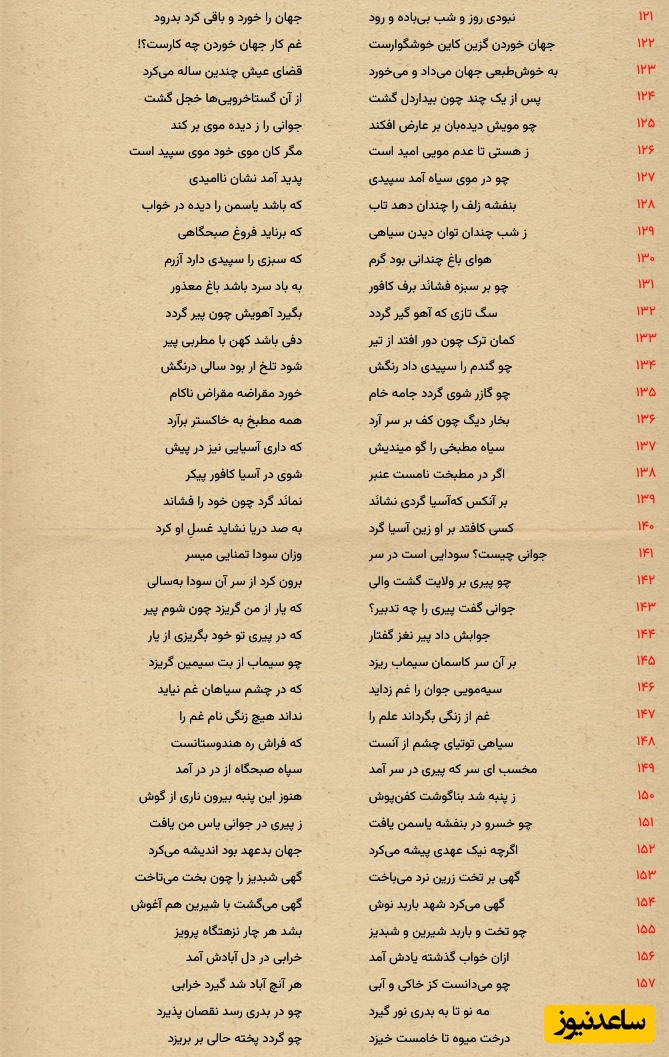 ۱۲۱ نبودی روز و شب بی‌باده و رود جهان را خورد و باقی کرد بدرود
۱۲۲ جهان خوردن گزین کاین خوشگوارست غم کار جهان خوردن چه کارست؟!
۱۲۳ به خوش‌طبعی جهان می‌داد و می‌خورد قضای عیش چندین ساله می‌کرد
۱۲۴ پس از یک چند چون بیداردل گشت از آن گستاخرویی‌ها خجل گشت
۱۲۵ چو مویش دیده‌بان بر عارض افکند جوانی را ز دیده موی بر کند
۱۲۶ ز هستی تا عدم مویی امید است مگر کان موی خود موی سپید است
۱۲۷ چو در موی سیاه آمد سپیدی پدید آمد نشان ناامیدی
۱۲۸ بنفشه زلف را چندان دهد تاب که باشد یاسمن را دیده در خواب
۱۲۹ ز شب چندان توان دیدن سیاهی که برناید فروغ صبحگاهی
۱۳۰ هوای باغ چندانی بود گرم که سبزی را سپیدی دارد آزرم
۱۳۱ چو بر سبزه فشانَد برف کافور به باد سرد باشد باغ معذور
۱۳۲ سگ تازی که آهو گیر گردد بگیرد آهویش چون پیر گردد
۱۳۳ کمان ترک چون دور افتد از تیر دفی باشد کهن با مطربی پیر
۱۳۴ چو گندم را سپیدی داد رنگش شود تلخ ار بود سالی درنگش
۱۳۵ چو گازر شوی گردد جامه خام خورد مقراضه مقراض ناکام
۱۳۶ بخار دیگ چون کف بر سر آرد همه مطبخ به خاکستر برآرد
۱۳۷ سیاه مطبخی را گو میندیش که داری آسیایی نیز در پیش
۱۳۸ اگر در مطبخت نامست عنبر شوی در آسیا کافور پیکر
۱۳۹ بر آنکس که‌آسیا گردی نشانَد نمانَد گرد چون خود را فشاند
۱۴۰ کسی کافتد بر او زین آسیا گرد به صد دریا نشاید غسلِ او کرد
۱۴۱ جوانی چیست؟ سودایی است در سر وزان سودا تمنایی میسر
۱۴۲ چو پیری بر ولایت گشت والی برون کرد از سر آن سودا به‌سالی
۱۴۳ جوانی گفت پیری را چه تدبیر؟ که یار از من گریزد چون شوم پیر
۱۴۴ جوابش داد پیر نغز گفتار که در پیری تو خود بگریزی از یار
۱۴۵ بر آن سر کاسمان سیماب ریزد چو سیماب از بت سیمین گریزد
۱۴۶ سیه‌مویی جوان را غم زداید که در چشم سیاهان غم نیاید
۱۴۷ غم از زنگی بگرداند علم را نداند هیچ زنگی نام غم را
۱۴۸ سیاهی توتیای چشم از آنست که فراش ره هندوستانست
۱۴۹ مخسب ای سر که پیری در سر آمد سپاه صبحگاه از در در آمد
۱۵۰ ز پنبه شد بناگوشت کفن‌پوش هنوز این پنبه بیرون ناری از گوش
۱۵۱ چو خسرو در بنفشه یاسمن یافت ز پیری در جوانی یاس من یافت
۱۵۲ اگرچه نیک عهدی پیشه می‌کرد جهان بدعهد بود اندیشه می‌کرد
۱۵۳ گهی بر تخت زرین نرد می‌باخت گهی شبدیز را چون بخت می‌تاخت
۱۵۴ گهی می‌کرد شهد باربد نوش گهی می‌گشت با شیرین هم آغوش
۱۵۵ چو تخت و باربد شیرین و شبدیز بشد هر چار نزهتگاه پرویز
۱۵۶ ازان خواب گذشته یادش آمد خرابی در دل آبادش آمد
۱۵۷ چو می‌دانست کز خاکی و آبی هر آنچ آباد شد گیرد خرابی
مه نو تا به بدری نور گیرد چو در بدری رسد نقصان پذیرد
درخت میوه تا خامست خیزد چو گردد پخته حالی بر بریزد
ساعدنیوز